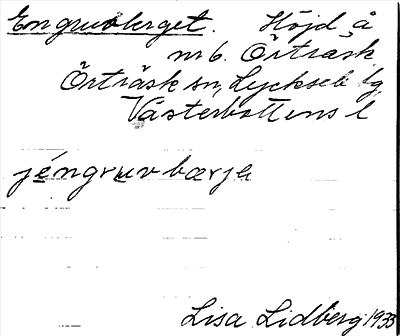 Engruvberget. Höjd å
nr 6. Örträsk
Örträsk sn, Lycksele tg,
Västerbottens l
jéngruvbærjə
Lisa Lidberg 1933